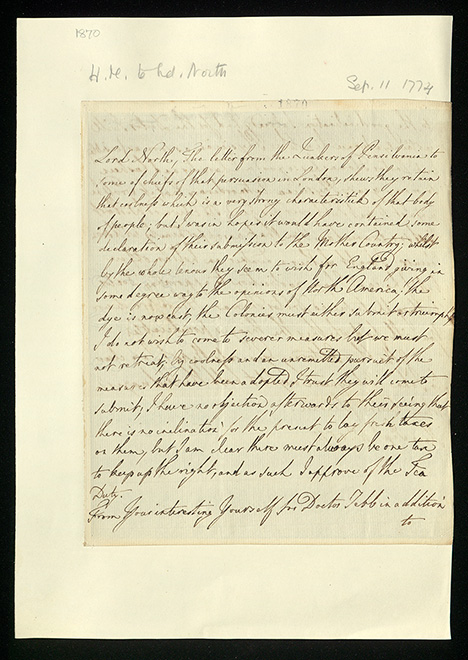 1870
H.M. to Ld. North
Sep. 11 1774
Lord North, The letter from the Quakers of Pensilvania to
some of chiefs of that persuasion in London, shews they retain
that coolness which is a very strong characteristick of that body
of people; but I was in hopes it would have contained some
declaration of their submission to the Mother Country; whilst
by the whole tenour they seem to wish for England giving in
some degree way to the opinions of North America. The
dye is now cast, the Colonies must either submit or triumph,
I do not wish to come to severer measures but we must
not retreat; by coolness and an unremitted pursuit of the
measures that have been adopted I trust they will come to
submit; I have no objection afterwards to their seeing that
there is no inclination for the present to lay fresh taxes
on them, but I am clear there must always be one tax
to keep up the right, and as such I approve of the Tea
Duty.
From Your interesting Yourself for Doctor Tebb in addition
to